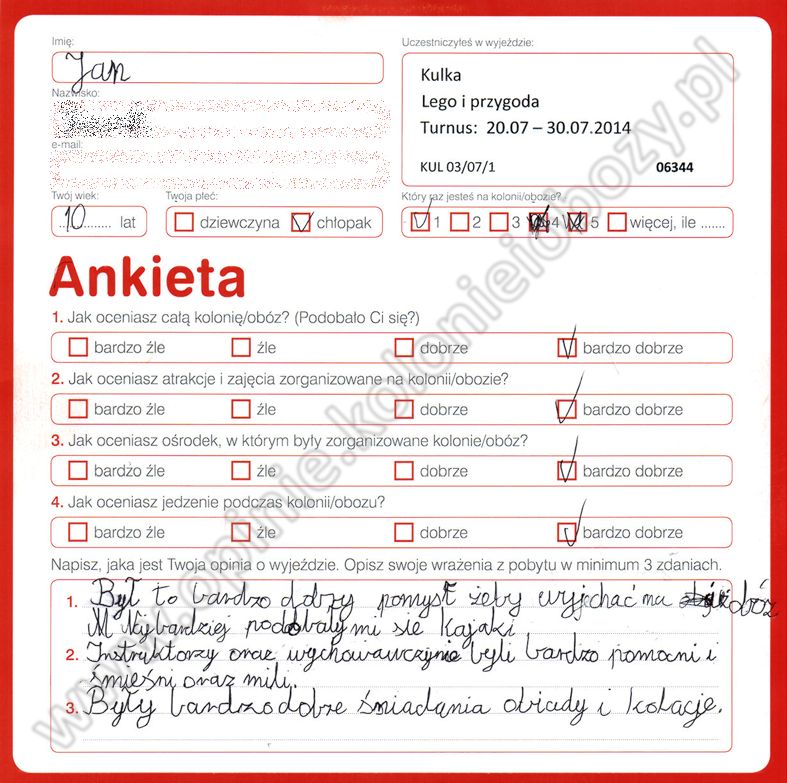 Imię:
Jan
Uczestniczyłeś w wyjeździe:
Kulka
Lego i przygoda
Turnus: 20.07 – 30.07.2014
KUL 03/07/1 06344
Nazwisko:
e-mail:
Twój wiek: Twoja płeć: Który raz jesteś na kolonii/obozie?
10 lat dziewczyna chłopak 1 2 3 4 5 więcej, ile .......
Ankieta
1. Jak oceniasz całą kolonię/obóz? (Podobało Ci się?)
bardzo źle źle dobrze bardzo dobrze
2. Jak oceniasz atrakcje i zajęcia zorganizowane na kolonii/obozie?
bardzo źle źle dobrze bardzo dobrze
3. Jak oceniasz ośrodek, w którym były zorganizowane kolonie/obóz?
bardzo źle źle dobrze bardzo dobrze
4. Jak oceniasz jedzenie podczas kolonii/obozu?
bardzo źle źle dobrze bardzo dobrze
Napisz, jaka jest Twoja opinia o wyjeździe. Opisz swoje wrażenia z pobytu w minimum 3 zdaniach.
1. Był to bardzo dobry pomysł żeby wyjechać na obóz
Najbardziej podobały mi sie kajaki
2. Instruktorzy oraz byli bardzo pomocni i
śmieśni oraz mili.
3. Były bardzo dobre śniadania obiady i kolacje.
www.opinie.kolonieiobozy.pl